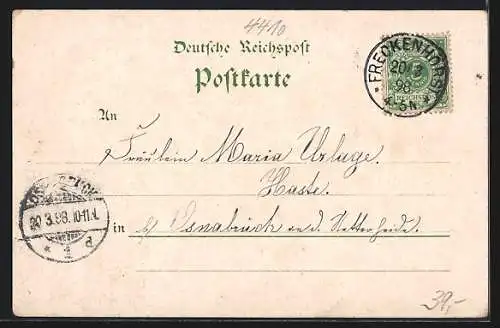 4410
Deutsche Reichspost
Postkarte
FRECKENHORST
20/3
98
4-5N
REICHSPOST
An
Fräulein Maria Urlage.
Haste.
in b/ Osnabrück a. d. Netterheide.
20.3.98.10-11.N.
1 d
39,-